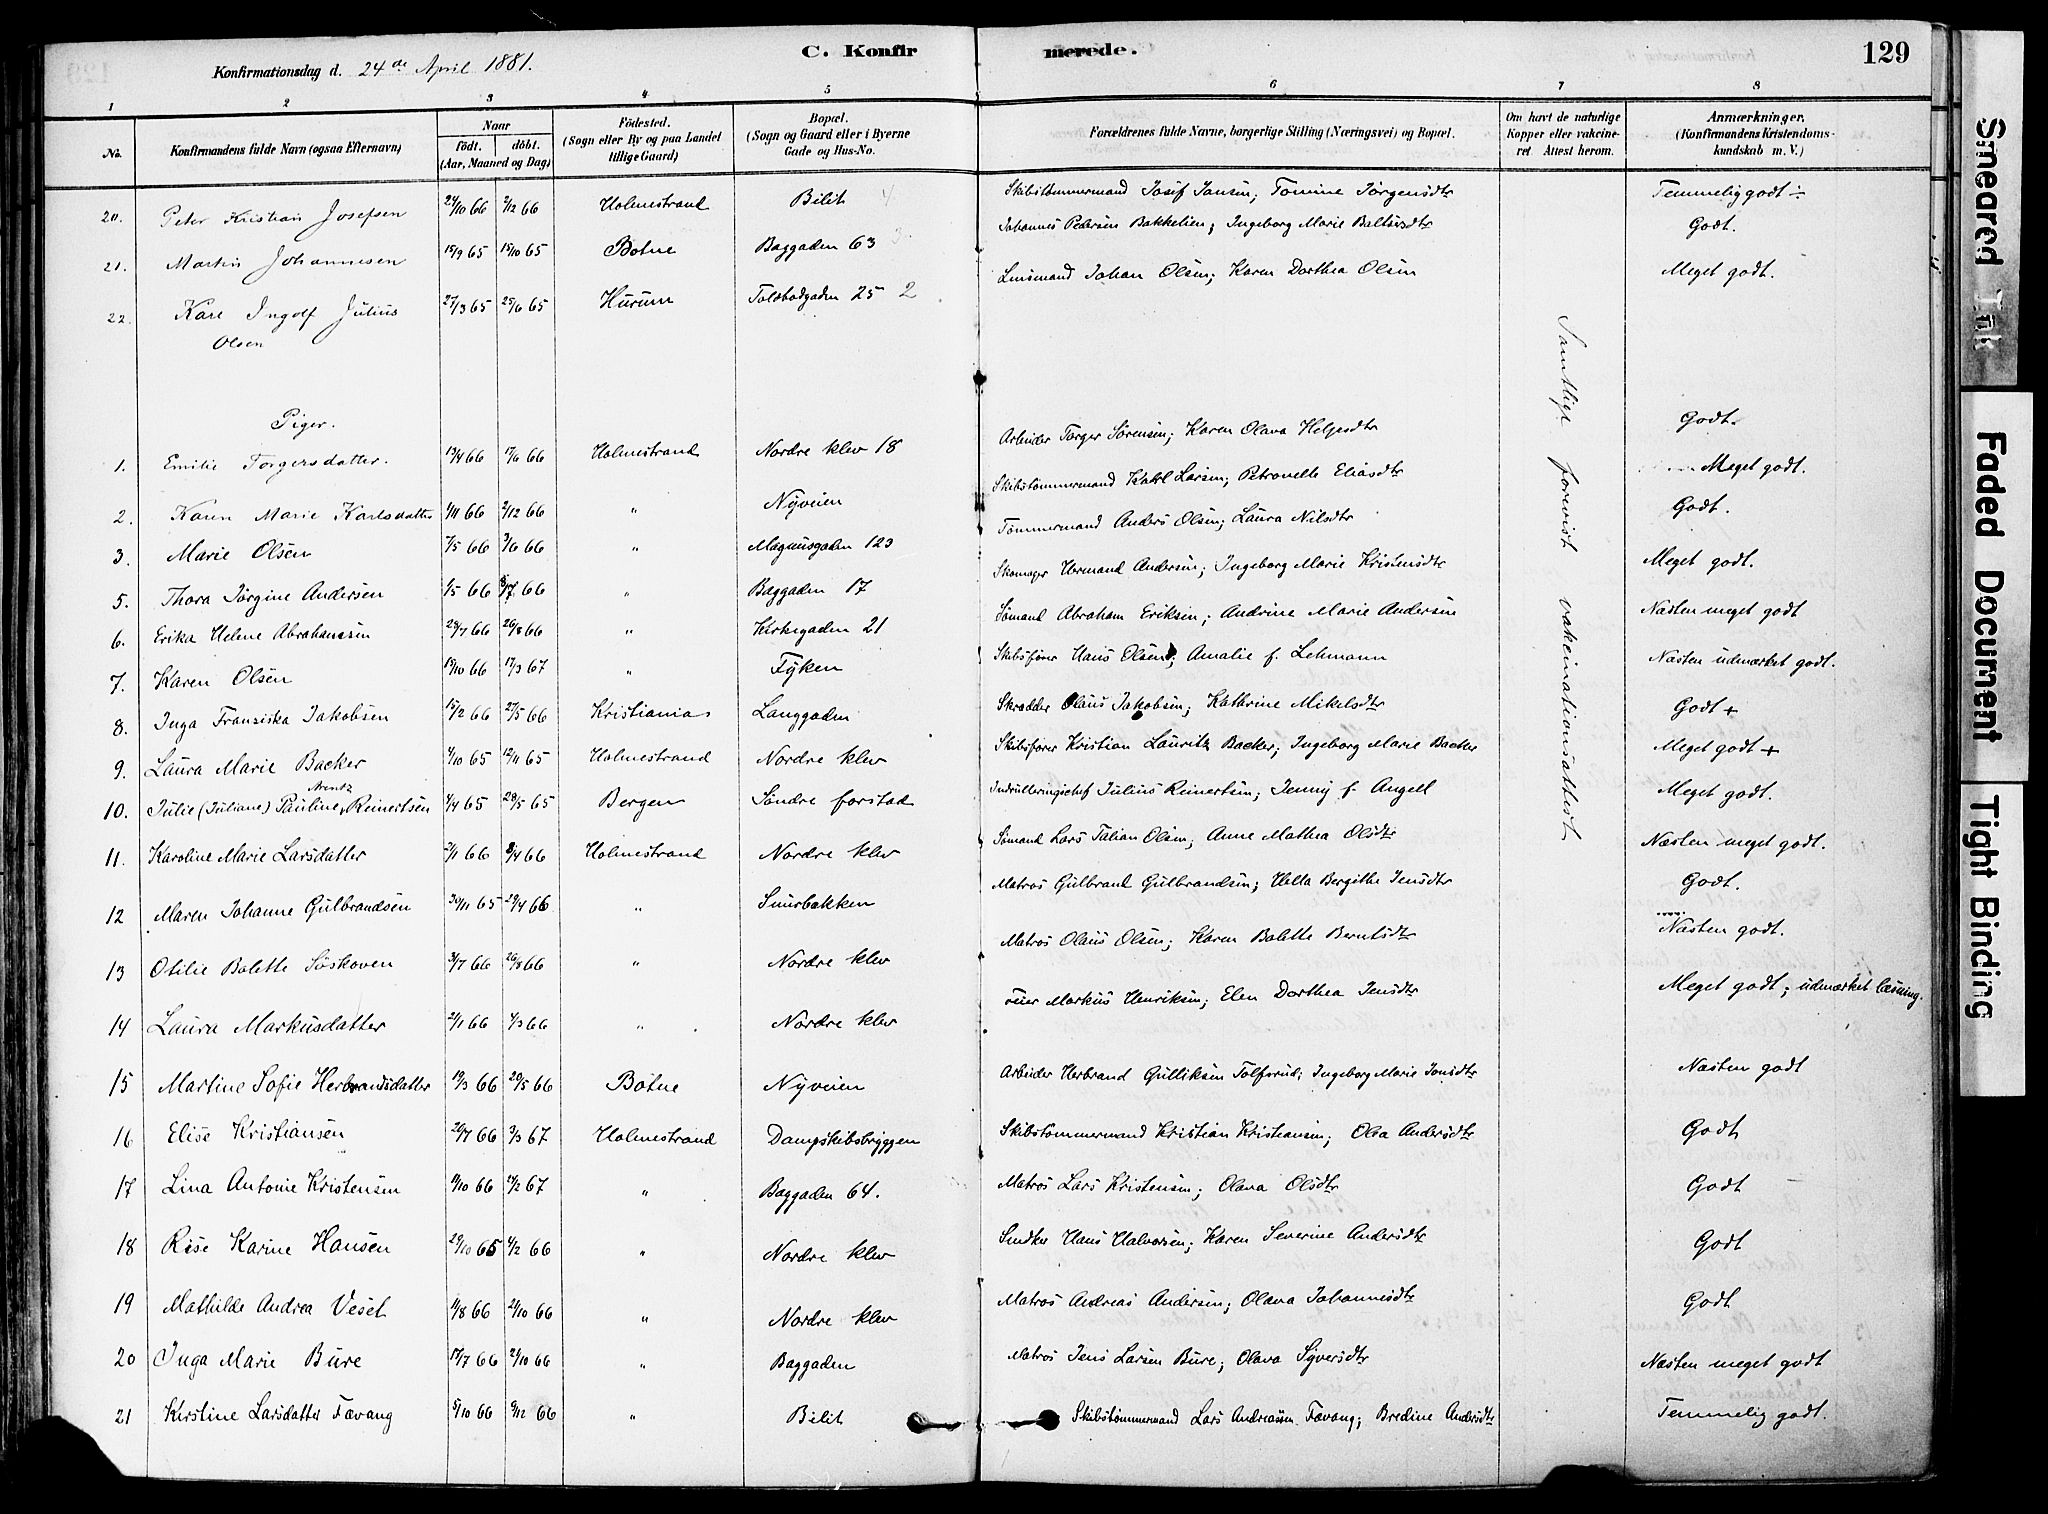 C. Konfirmerede.
129
Konfirmationsdag d. 24de April 1881.
1 2 3 4 5 6 7 8
No. Konfirmandens fulde Navn (ogsaa Efternavn) Naar födt. döbt. (Aar, Maaned og Dag) Födested. (Sogn eller By og paa Landet tillige Gaard) Bopæl. (Sogn og Gaard eller i Byerne Gade og Hus-No. Forældrenes fulde Navne, borgerlige Stilling (Næringsvei) og Bopæl. Om havt de naturlige Kopper eller vakcineret. Attest herom. Anmærkninger. (Konfirmandens Kristendomskundskab m. V.)
20. Peter Kristian Josefsen 24/10 66 2/12 66 Holmestrand Bilit 4 Skibstømmermand Josif Jansen; Tomine Jörgensdtr Temmelig godt ÷
21. Martin Johannesen 15/9 65 15/10 65 Botne Baggaden 63 3 Johannes Pedersen Bakkelien; Ingeborg Marie Baltsersdtr Godt.
22. Karl Ingolf Julius Olsen 27/3 65 25/6 65 Hurum Toldbodgaden 25 2 Linsmand Johan Olsen; Karen Dorthea Olsen Meget godt.
Samtlige forevist vakcinationsattest
Piger.
1. Emilie Torgersdatter. 13/4 66 17/6 66 Holmestrand Nordre klev 18 Arbeider Torger Sørensen; Karen Olava Helgesdtr Godt.
2. Karen Marie Karlsdatter 1/11 66 2/12 66 " Nyveien Skibstømmermand Karl Larsen; Petronelle Eliasdtr Meget godt.
3. Marie Olsen 7/5 66 3/6 66 " Magnusgaden 123 Tømmermand Anders Olsen; Laura Nilsdtr Godt.
5. Thora Jörgine Andersen 1/5 66 8/7 66 " Baggaden 17 Skomager Hermand Andersen; Ingeborg Marie Kristensdtr Meget godt.
6. Erika Helene Abrahamsen 28/7 66 26/8 66 " Kirkegaden 21 Sømand Abraham Eriksen; Andrine Marie Andersen Næsten meget godt
7. Karen Olsen 19/10 66 17/3 67 " Tyken Skibsfører Hans Olsen; Amalie f. Lehmann Næsten udmærket godt.
8. Inga Franziska Jakobsen 15/2 66 27/5 66 Kristiania Langgaden Skrædder Olaus Jakobsen; Kathrine Mikelsdtr Godt +
9. Laura Marie Backer 4/10 65 12/11 65 Holmestrand Nordre klev Skibsfører Kristian Lauritz Backer; Ingeborg Marie Backer Meget godt +
10. Julie (Juliane) Pauline Arentz Reinertsen 4/4 65 28/5 65 Bergen Søndre forstad Indrulleringschef Julius Reinertsen; Jenny f. Angell Meget godt.
11. Karoline Marie Larsdatter 2/1 66 8/4 66 Holmestrand Nordre klev Sømand Lars Talian Olsen; Anne Mathea Olsdtr Næsten meget godt.
12 Maren Johanne Gulbrandsen 30/11 65 29/4 66 " Smørbakken Matros Gulbrand Gulbrandsen; Hella Bergithe Jensdtr Godt.
13 Otilie Bolette Söskoven 31/7 66 26/8 66 " Nordre klev Matros Olaus Olsen; Karen Bolette Berntsdtr Næsten godt.
14 Laura Markusdatter 21/1 66 4/3 66 " Nordre klev Markus Henriksen; Elen Dorthea Jensdtr Meget godt; udmærket læsning.
15 Martine Sofie Herbrandsdatter 19/3 66 20/5 66 Botne Nyveien Arbeider Herbrand Gulliksen Tolfsrud; Ingeborg Marie Jonsdtr Næsten godt
16 Elise Kristiansen 26/7 66 3/3 67 Holmestrand Dampskibsbryggen Skibstømmermand Kristian Kristiansen; Olea Andersdtr Godt
17 Lina Antonie Kristensen 9/10 66 17/2 67 " Baggaden 64. Matros Lars Kristensen; Olava Olsdtr Godt
18 Rise Karine Hansen 29/10 65 4/2 66 " Nordre klev Snedker Hans Halvorsen; Karen Severine Andersdtr Godt
19 Mathilde Andrea Veset 11/8 66 21/10 66 " Nordre klev Matros Andreas Andersen; Olava Johannesdtr Godt
20 Inga Marie Bure 17/7 66 21/10 66 " Baggaden Matros Jens Larsen Bure; Olava Syversdtr Næsten meget godt
21 Kirstine Larsdatter Fævang 5/10 66 9/12 66 " Bilit Skibstømmermand Lars Andreassen Fævang; Bredine Andersdtr Temmelig godt.
Smeared Ink
Faded Document
Tight Binding